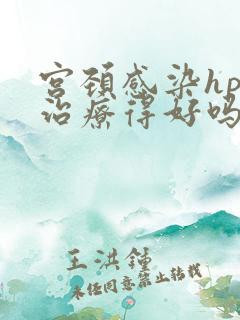 宫颈感染hp
治疗得好吗
王洪钟
未经同意禁止转载